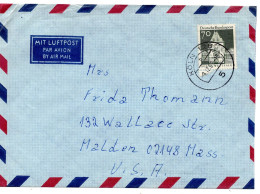 MIT LUFTPOST
PAR AVION
BY AIR MAIL
70
KÖLN
5
Mrs
Frida Thomann
132 Wallace Str.
Malden 02148 Mass.
U.S.A.